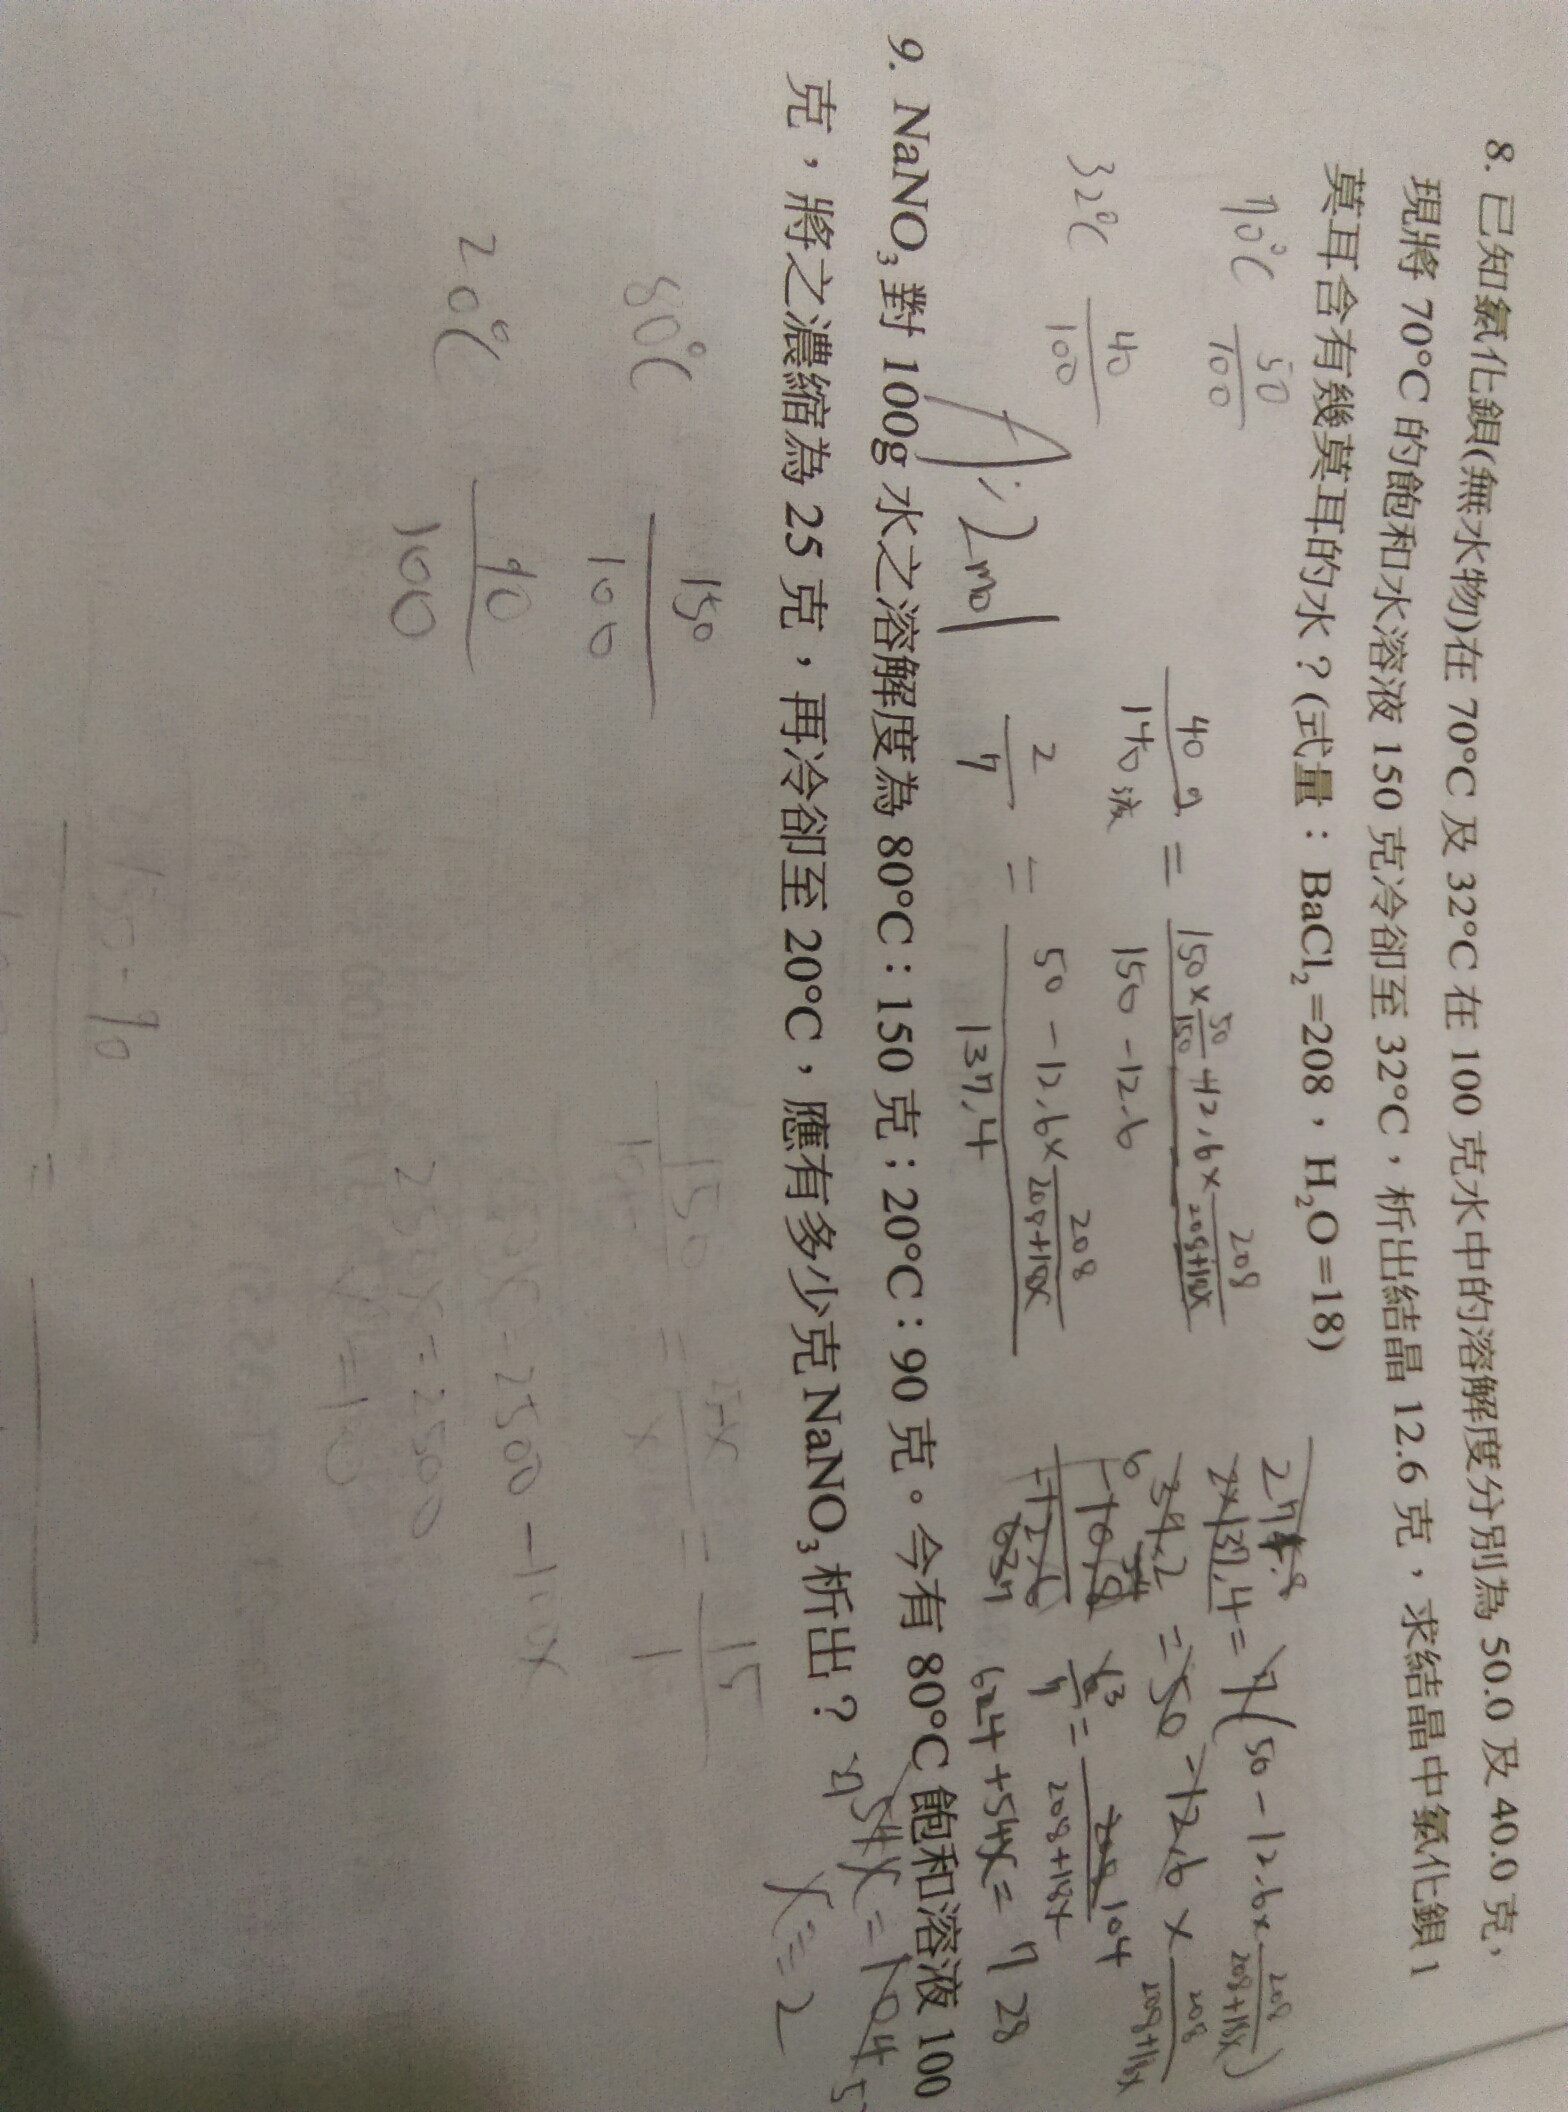 8. 已知氯化鋇(無水物)在 70°C 及 32°C 在 100 克水中的溶解度分別為 50.0 及 40.0 克，
現將 70°C 的飽和水溶液 150 克冷卻至 32°C，析出結晶 12.6 克，求結晶中氯化鋇 1
莫耳含有幾莫耳的水？(式量：BaCl₂=208，H₂O=18)
70°C 50/100
32°C 40/100
A: 2mol
40g/140液 = 150×50/150 - 12.6×208/(208+18x) / 150-12.6
2/7 = 50-12.6×208/(208+18x) / 137.4
2×137.4 = 7(50-12.6×208/(208+18x))
= 50-12.6×208/(208+18x)
63/7 = 104/(208+18x)
624+54x=728
54x=104
x=2
9. NaNO₃對 100g 水之溶解度為 80°C：150 克；20°C：90 克。今有 80°C 飽和溶液 100
克，將之濃縮為 25 克，再冷卻至 20°C，應有多少克 NaNO₃析出？
80°C 150/100
20°C 90/100
2500-100x
250x=2500
x=10
150-90
=